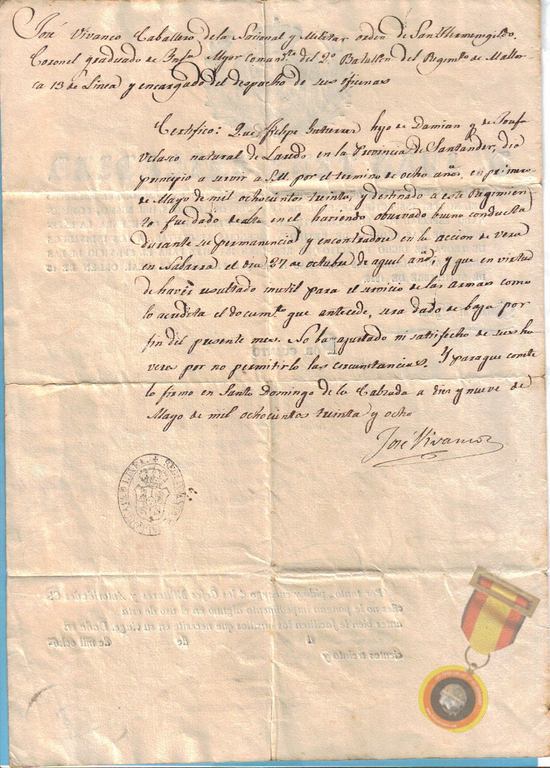 José Vivanco Caballero de la Nacional y Militar orden de San Hermenegildo.
Coronel graduado de Infª Mayor Comandte del 2º Batallón del Regimto de Mallor
ca 13 de Linea y encargado del despacho de sus oficinas
Certifico: Que Felipe Gutierrez hijo de Damian y de
Velasco natural de Laredo en la Provincia de Santander, dio
principio a servir a S.M. por el termino de ocho años, en primero
de Mayo de mil ochocientos treinta, y destinado a este Regimien
to fue dado de alta en el habiendo observado buena conducta
durante su permanencia y encontradose en la accion de vera
en Navarra el dia 27 de octubre de aquel año, y que en virtud
de haver resultado inutil para el servicio de las armas como
lo acredita el documto que antecede, sera dado de baja por
fin del presente mes. No ba ajustado ni satisfecho de sus ha
veres por no permitirlo las circunstancias. Y para que conste
lo firmo en Santo Domingo de la Calzada a diez y nueve de
Mayo de mil ochocientos treinta y ocho
José Vivanco
Por tanto, pido y encargo á los Gefes Militares y Autoridades Ci-
viles no le pongan impedimento alguno en el uso de esta
antes bien le faciliten los auxilios que necesite en su viage. Dado en
á de de mil ocho-
cientos treinta y